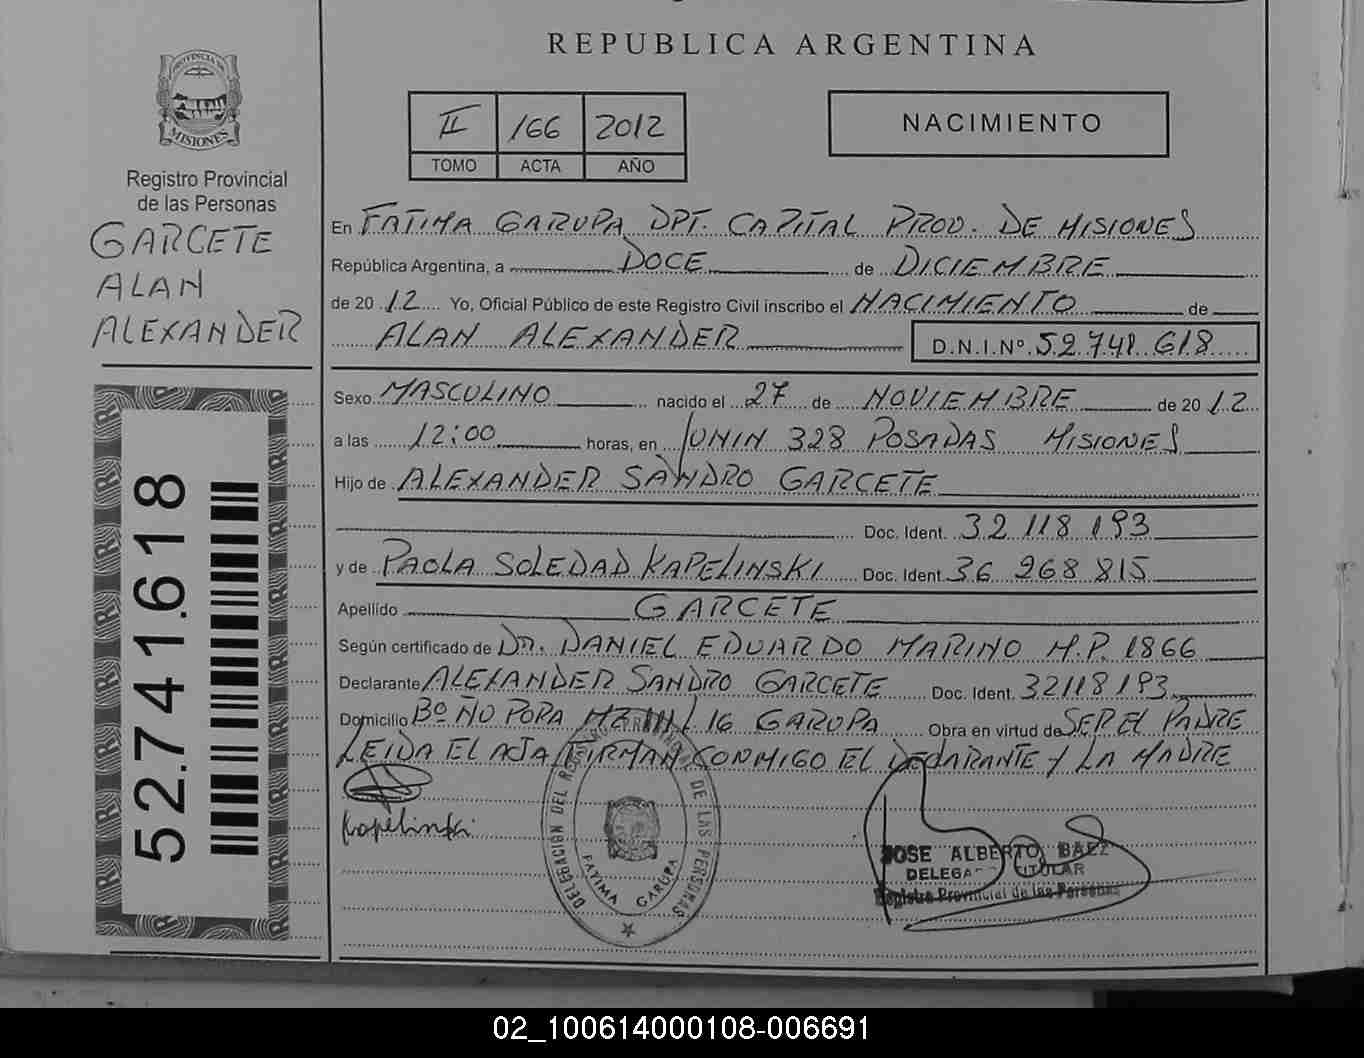 REPUBLICA ARGENTINA
PROVINCIA DE
MISIONES
Registro Provincial
de las Personas
GARCETE
ALAN
ALEXANDER
52.741.618
II 166 2012
TOMO ACTA AÑO
NACIMIENTO
En FATIMA GARUPA DPT. CAPITAL PROV. DE MISIONES
República Argentina, a DOCE de DICIEMBRE
de 20 12 Yo, Oficial Público de este Registro Civil inscribo el NACIMIENTO de
ALAN ALEXANDER D.N.I.Nº 52 741 618
Sexo MASCULINO nacido el 27 de NOVIEMBRE de 20 12
a las 12:00 horas, en JUNIN 328 POSADAS MISIONES
Hijo de ALEXANDER SANDRO GARCETE
Doc. Ident. 32 118 193
y de PAOLA SOLEDAD KAPELINSKI Doc. Ident. 36 268 815
Apellido GARCETE
Según certificado de DR. DANIEL EDUARDO MARINO M.P. 1866
Declarante ALEXANDER SANDRO GARCETE Doc. Ident. 32118193
Domicilio Bº ÑU PORA MZ 16 GARUPA Obra en virtud de SER EL PADRE
LEIDA EL ACTA FIRMAN CONMIGO EL DECLARANTE Y LA MADRE
Kapelinski
DELEGACIÓN DEL REGISTRO PROV. DE LAS PERSONAS
FATIMA GARUPA
JOSE ALBERTO BAEZ
DELEGADO TITULAR
Registro Provincial de las Personas
02_100614000108-006691